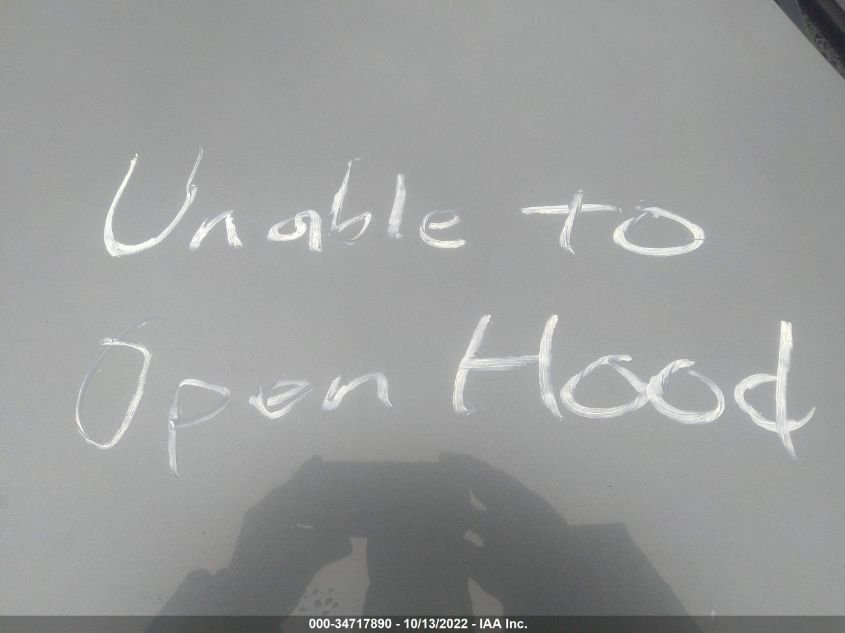 Unable to
Open Hood
000-34717890 - 10/13/2022 - IAA Inc.